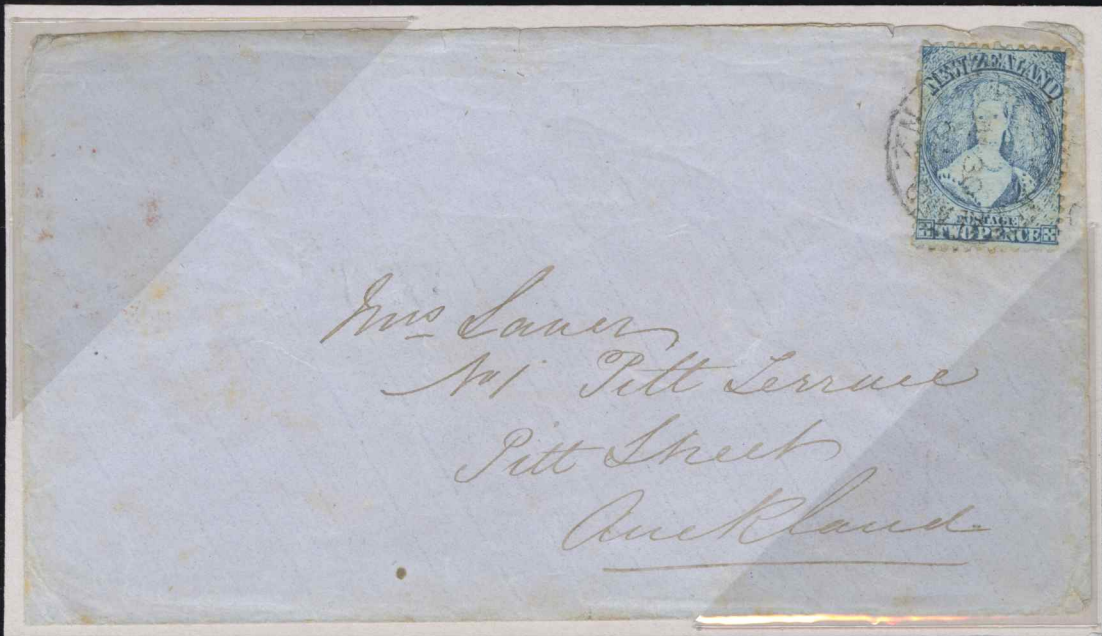 NEW ZEALAND
POSTAGE
TWO PENCE
Mrs Laver
No 1 Pitt Terrace
Pitt Street
Auckland